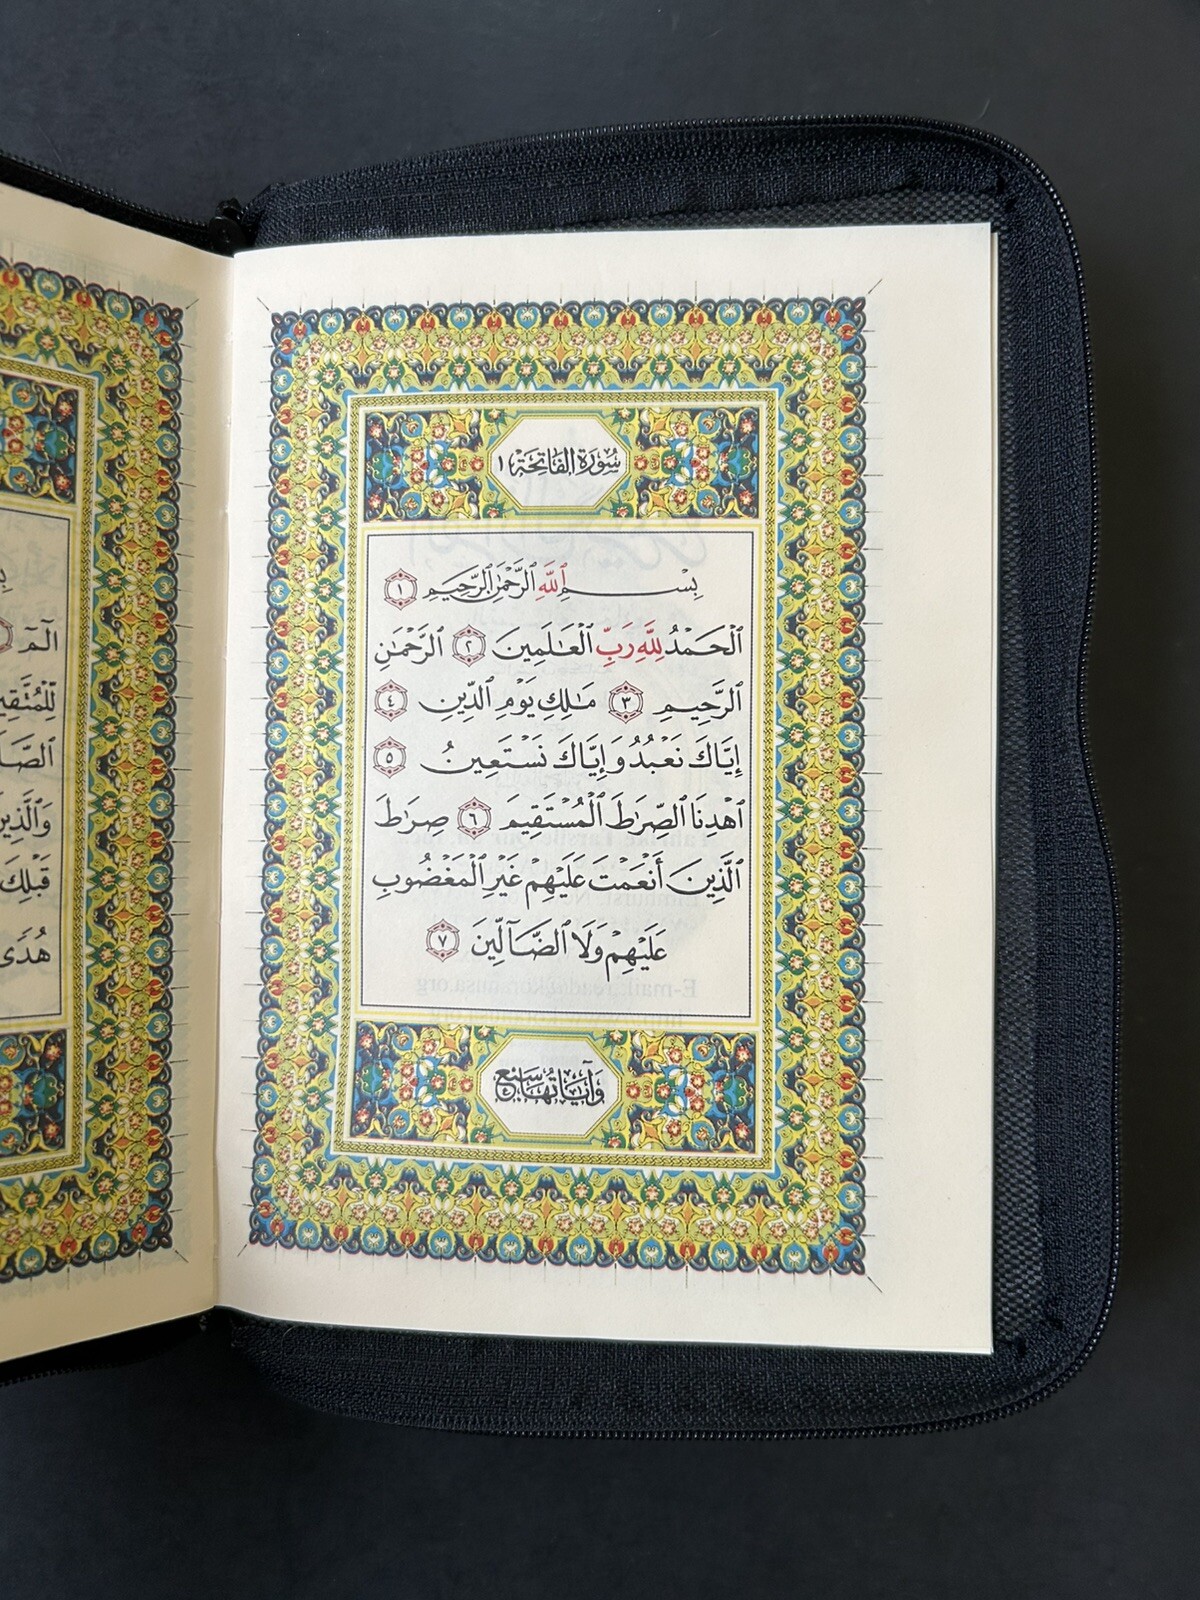 سُورَةُ الفَاتِحَة ١
بِسْمِ ٱللَّهِ ٱلرَّحْمَٰنِ ٱلرَّحِيمِ ١
ٱلْحَمْدُ لِلَّهِ رَبِّ ٱلْعَٰلَمِينَ ٢ ٱلرَّحْمَٰنِ
ٱلرَّحِيمِ ٣ مَٰلِكِ يَوْمِ ٱلدِّينِ ٤
إِيَّاكَ نَعْبُدُ وَإِيَّاكَ نَسْتَعِينُ ٥
ٱهْدِنَا ٱلصِّرَٰطَ ٱلْمُسْتَقِيمَ ٦ صِرَٰطَ
ٱلَّذِينَ أَنْعَمْتَ عَلَيْهِمْ غَيْرِ ٱلْمَغْضُوبِ
عَلَيْهِمْ وَلَا ٱلضَّآلِّينَ ٧
وَآيَاتُهَا سَبْعٌ
الٓمٓ
هُدًى